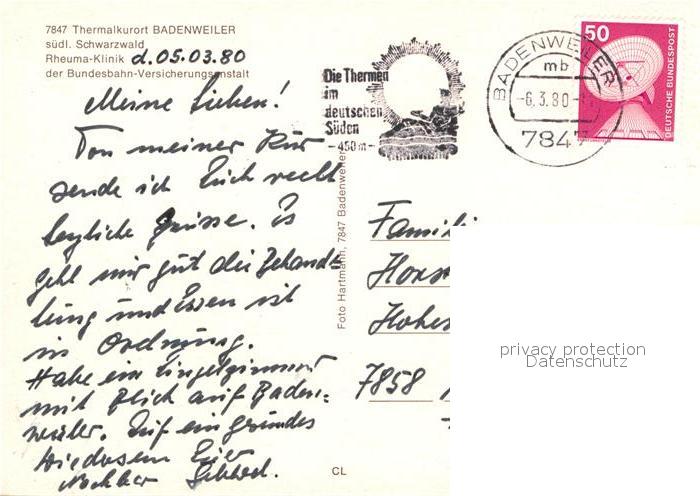 7847 Thermalkurort BADENWEILER
südl. Schwarzwald
Rheuma-Klinik d. 05.03.80
der Bundesbahn-Versicherungsanstalt
Meine Lieben!
Von meiner Kur
sende ich Euch recht
herzliche Grüsse. Es
geht mir gut die Behand-
lung und Essen ist
in Ordnung.
Habe ein Einzelzimmer
mit Blick auf Baden:
weiler. Auf ein gesundes
Wiedersehn Euer
Nachbar
Die Thermen
im
deutschen
Süden
- 450 m -
BADENWEILER
mb
-6.3.80-
7847
50
DEUTSCHE BUNDESPOST
Foto Hartmann, 7847 Badenweiler
Famili
Hors
Hohes
7858
CL
privacy protection
Datenschutz